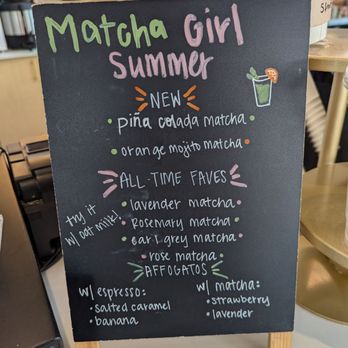 Matcha Girl
Summer
NEW
• piña colada matcha •
• orange mojito matcha •
ALL-TIME FAVES
• lavender matcha •
• Rosemary matcha •
• earl grey matcha •
• rose matcha •
try it
w/ oat milk!
AFFOGATOS
w/ espresso:
• salted caramel
• banana
w/ matcha:
• strawberry
• lavender